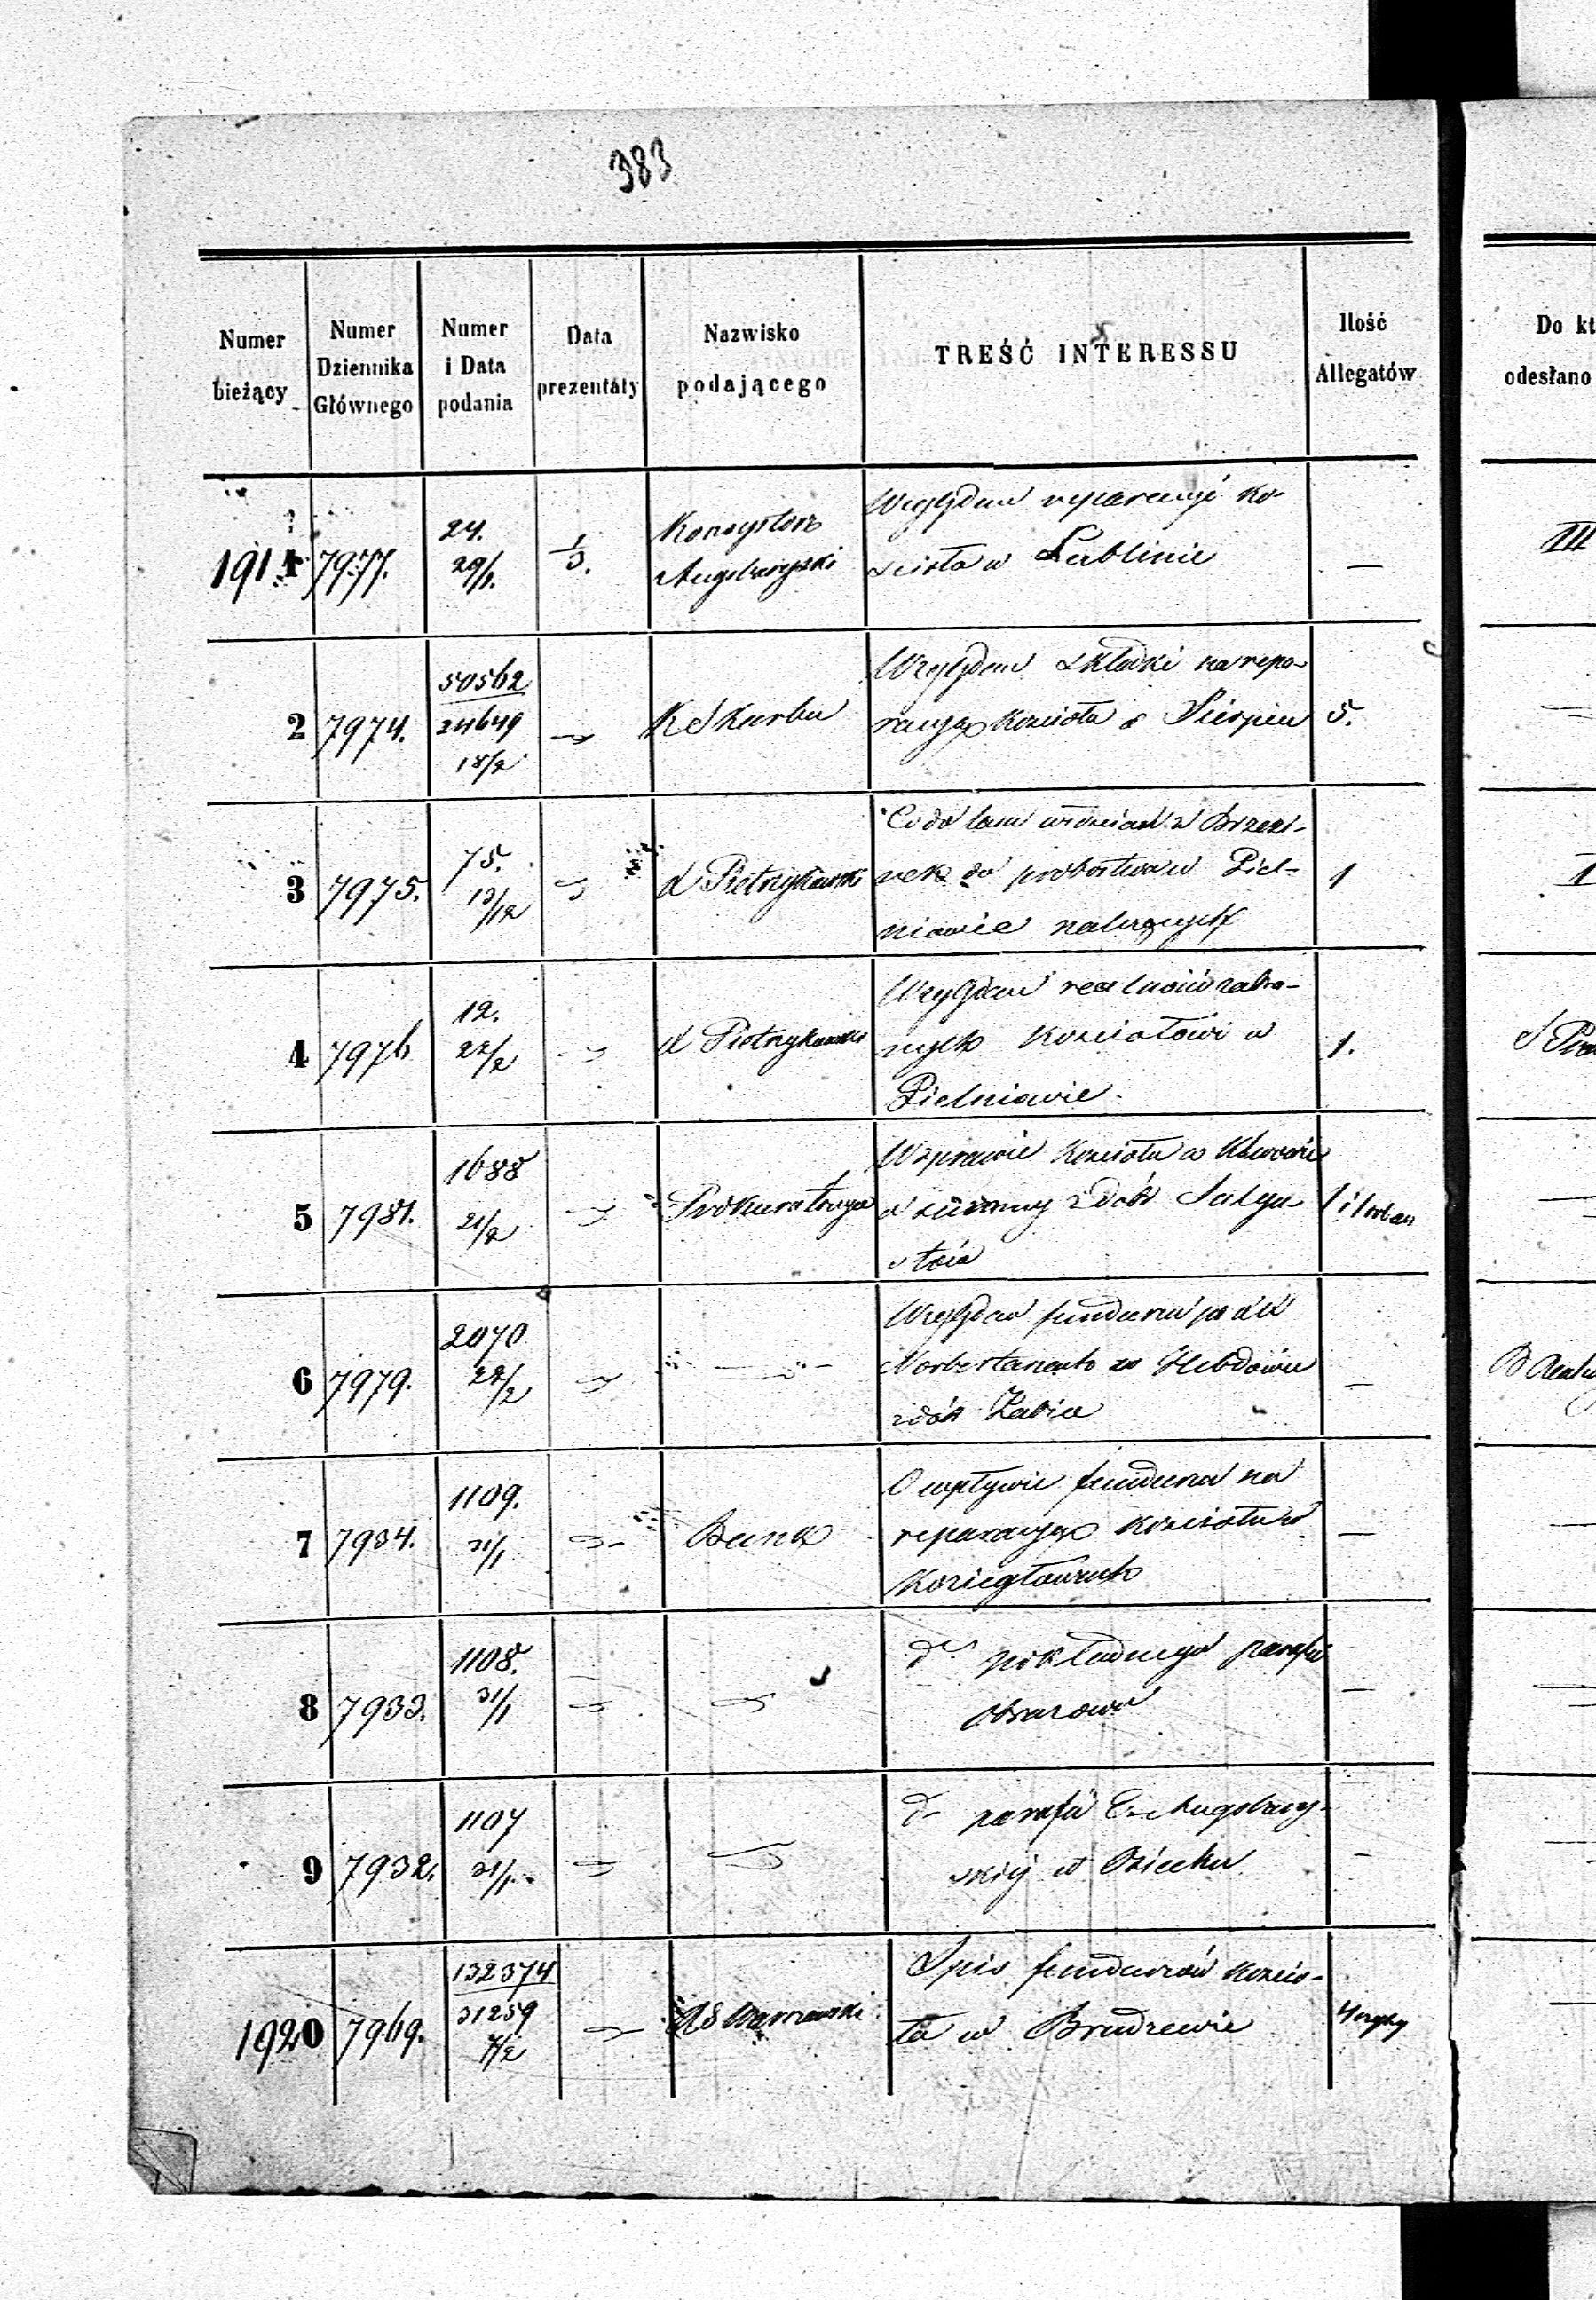 383
Numer bieżący
Numer Dziennika Głównego
Numer i Data podania
Data prezentáty
Nazwisko podającego
TREŚĆ INTERESSU
Ilość Allegatów
Do kt
odesłano
1911 7977. 24. 29/1. 1/3. Konsystorz Augsburgski
Względem reparacyi ko-
ścioła w Lublinie — III
2 7974. 50562 24649 18/2 K Skarbu
Względem składki na repa-
racyą kościoła w Sierpcu 5.
3 7975. 75. 13/12 X Pietrzykowski
Co do lasu włościan z Brzezi-
nek do probostwa w Piel-
niowie należących 1 I
4 7976 12. 22/2 X Pietrzykowski
Względem realności zabra-
nych kościołowi w 1.
Pielniowie.
5 7981. 1688 21/2 Prokuratorya
W sprawie kościoła w
o summy z dóbr
1 i 1
6 7979. 2070 22/2 —
Względem funduszu po XX
Norbertanach w Hebdowie —
z dóbr Łabice
7 7934. 1109. 31/1 Bank
O wpływie funduszu na
reparacyą kościoła w —
Koziegłowach
8 7933. 1108. 31/1
do pokładnego parafii —
Obrazowa
9 7932. 1107 31/1.
do parafii Ew Augsburg-
skiej w Osieku —
1920 7969. 132374 31259 RG Warszawski
Spis funduszów kościo-
ła w Brudzewie